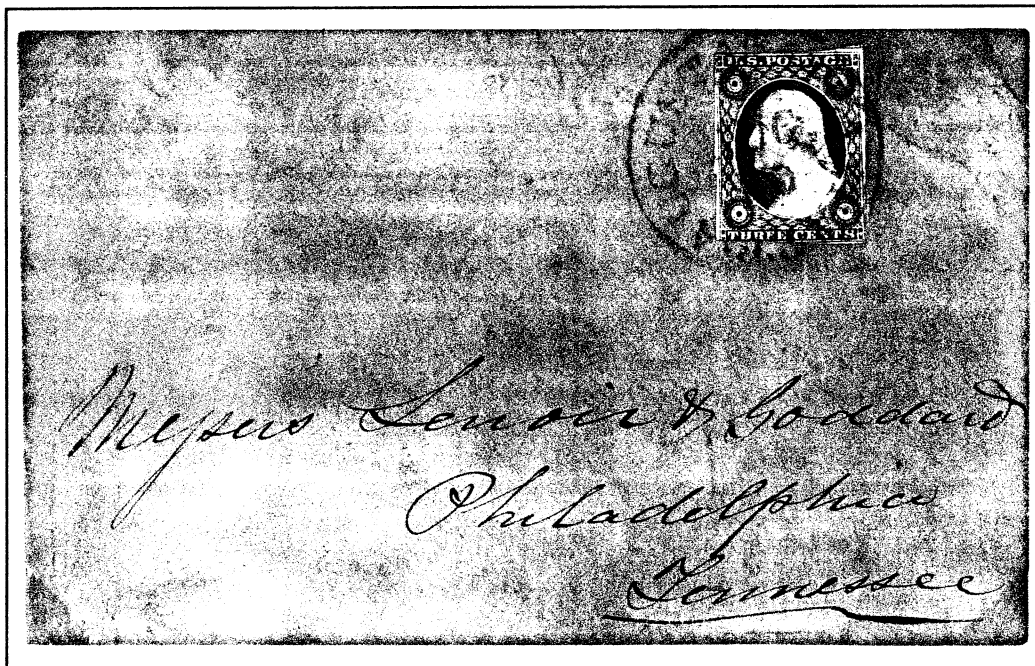 U.S. POSTAGE
THREE CENTS
Messrs Lenoir & Goddard
Philadelphia
Tennessee